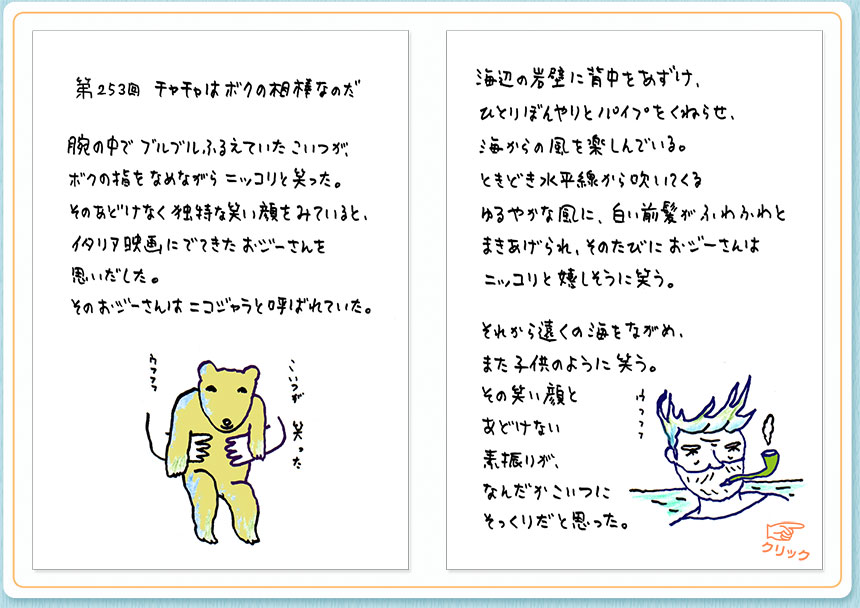 第253回 チャチャはボクの相棒なのだ
腕の中でブルブルふるえていたこいつが、
ボクの指をなめながらニッコリと笑った。
そのあどけなく独特な笑い顔をみていると、
イタリア映画にでてきたおジーさんを
思いだした。
そのおジーさんはニコジャラと呼ばれていた。
ウフフフ
こいつが
笑った
海辺の岩壁に背中をあずけ、
ひとりぼんやりとパイプをくねらせ、
海からの風を楽しんでいる。
ときどき水平線から吹いてくる
ゆるやかな風に、白い前髪がふわふわと
まきあげられ、そのたびにおジーさんは
ニッコリと嬉しそうに笑う。
それから遠くの海をながめ、
また子供のように笑う。
その笑い顔と
あどけない
素振りが、
なんだかこいつに
そっくりだと思った。
ウフフフ
クリック